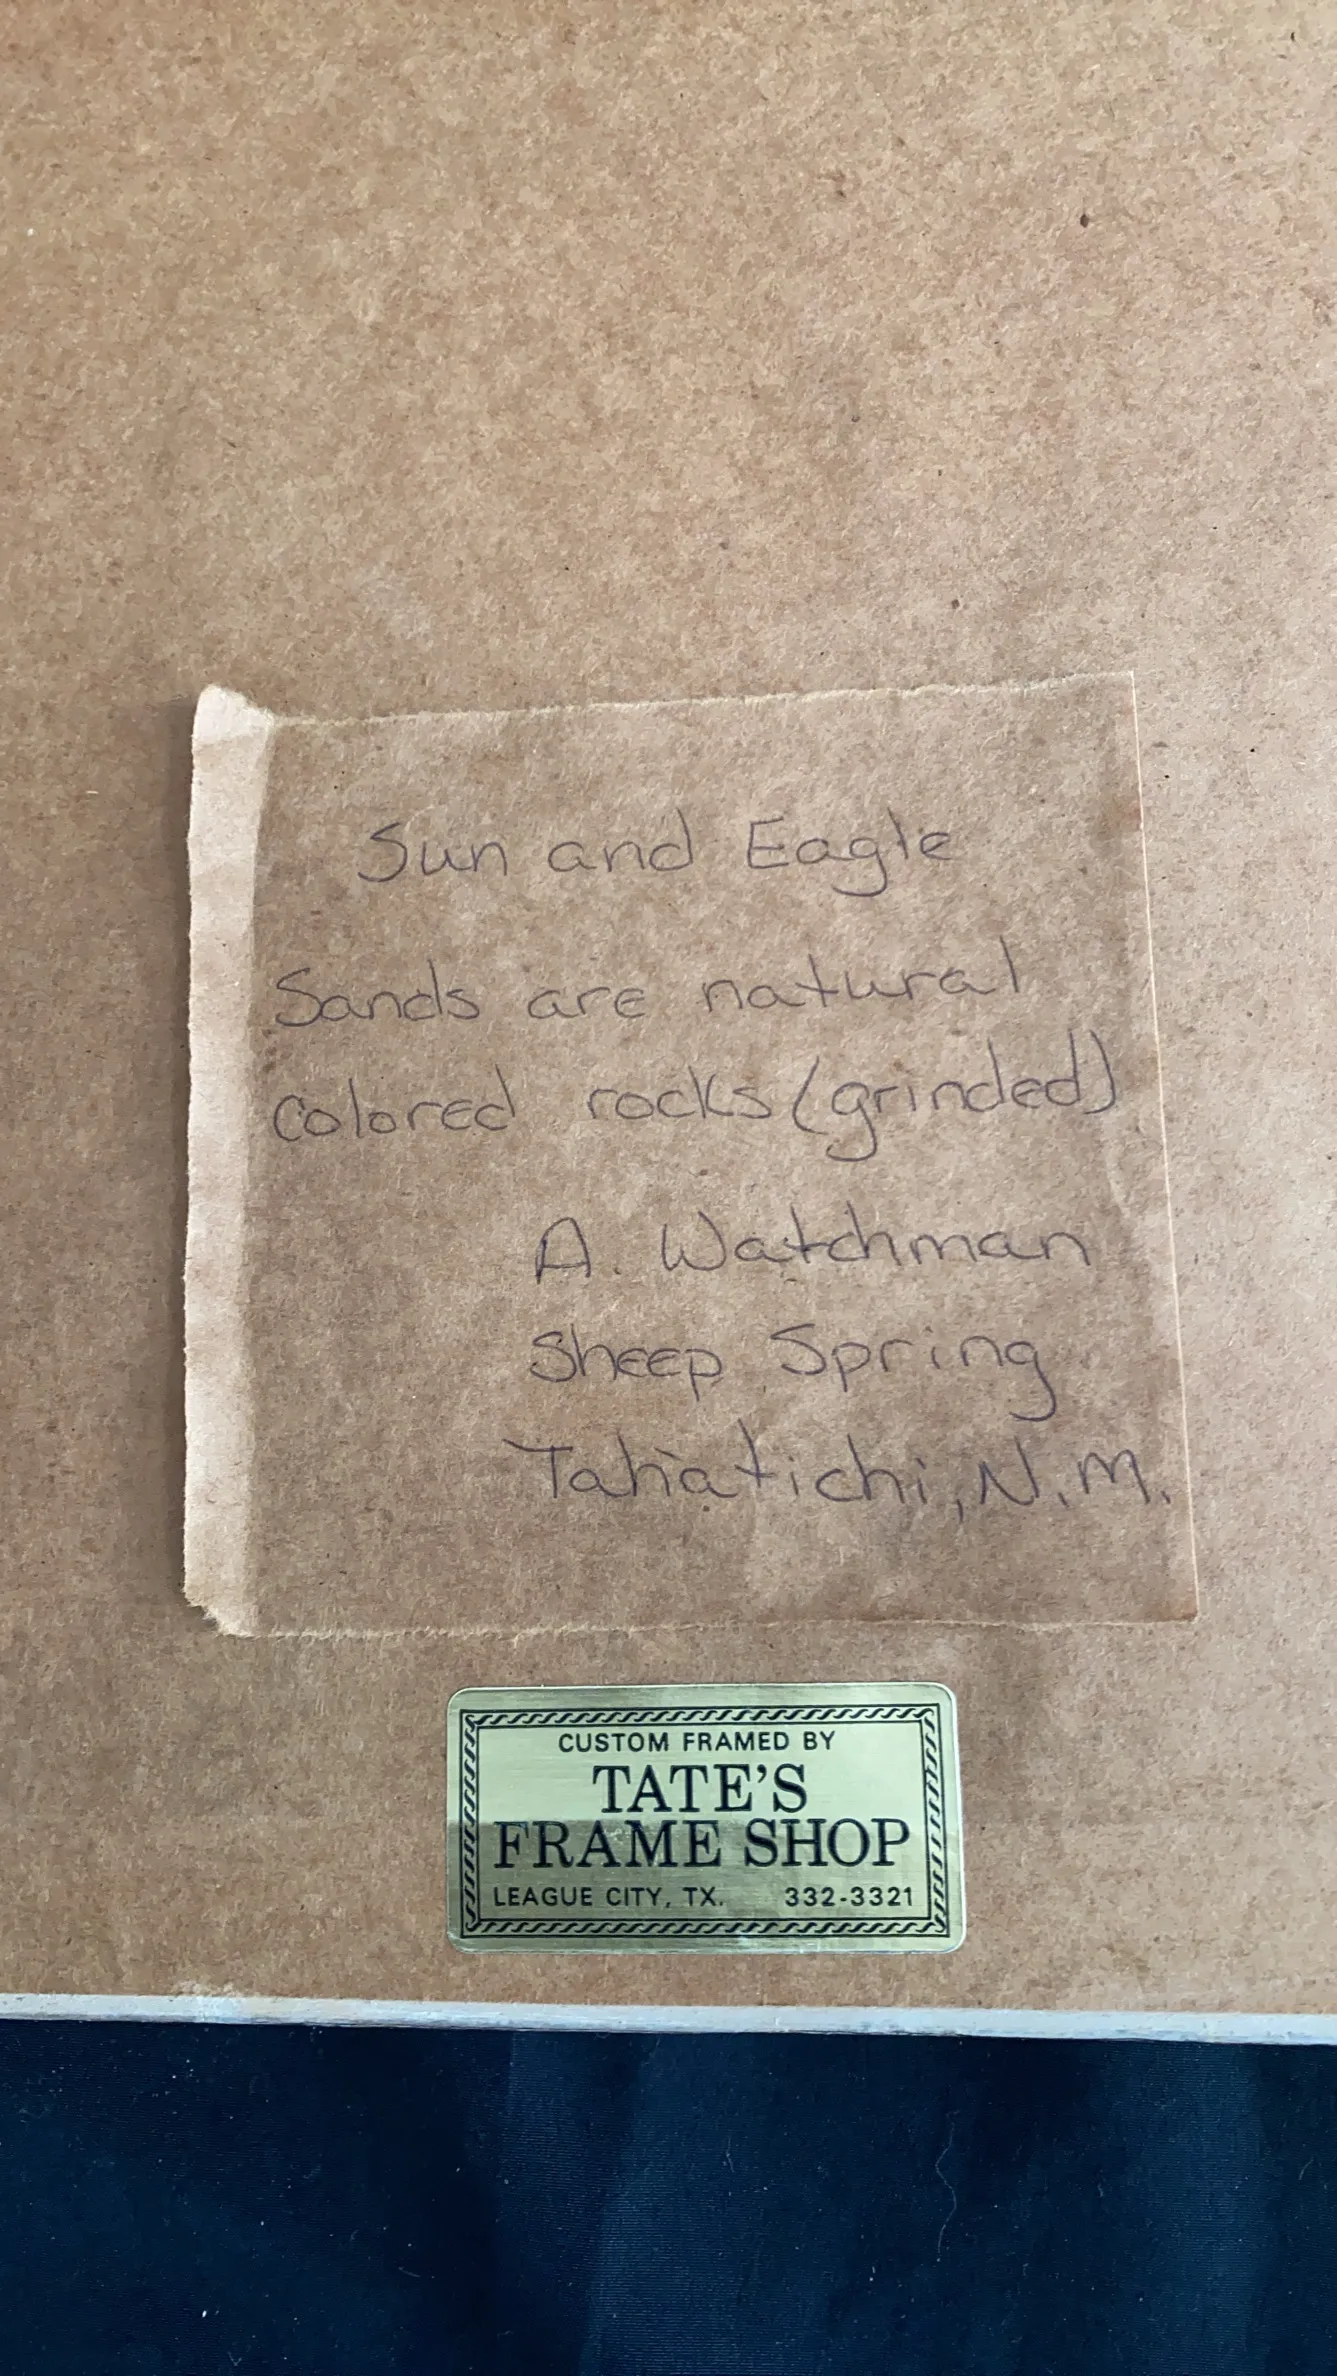 Sun and Eagle
Sands are natural
colored rocks (grinded)
A. Watchman
Sheep Spring
Tahatichi, N.M.
CUSTOM FRAMED BY
TATE'S
FRAME SHOP
LEAGUE CITY, TX. 332-3321